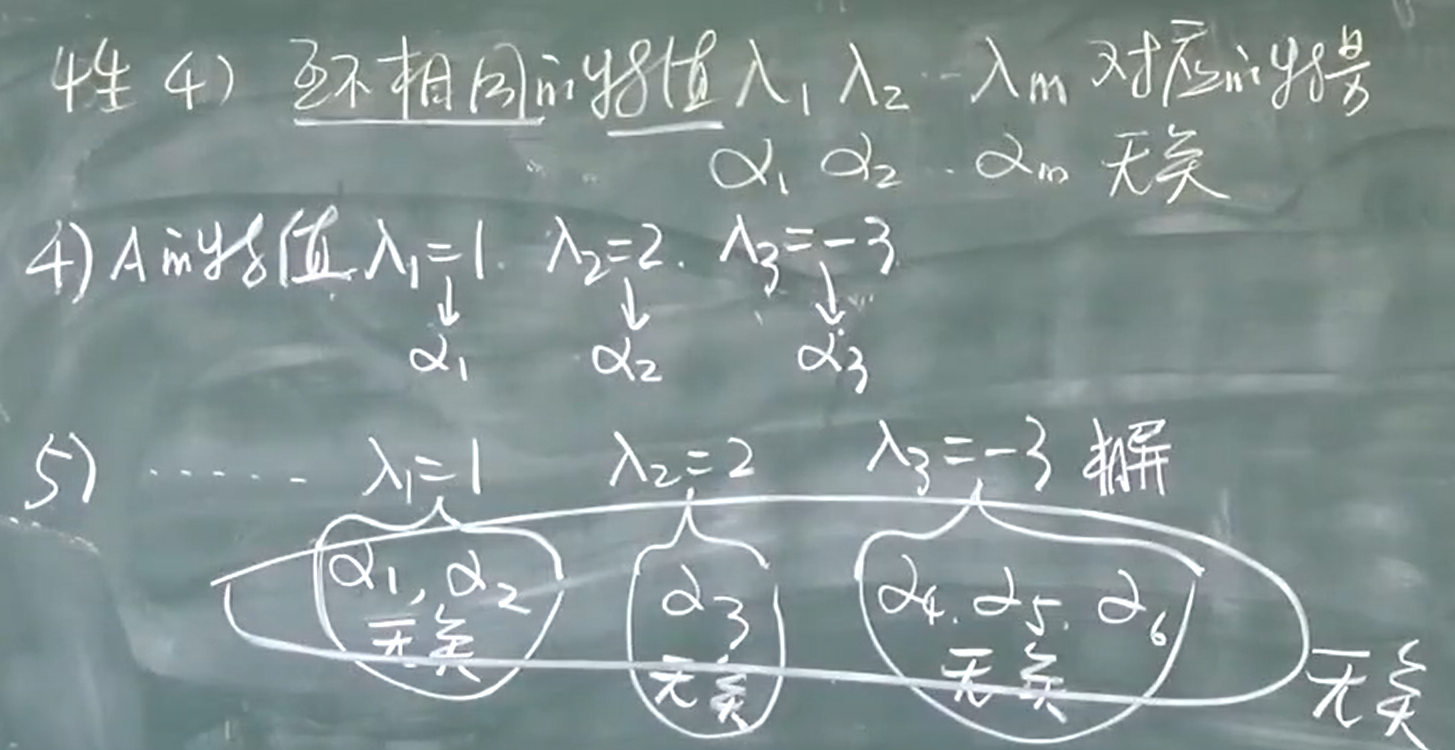 性 4) 互不相同的特值 λ₁ λ₂ … λm 对应的特量
α₁ α₂ … αm 无关
4) A的特值 λ₁=1. λ₂=2. λ₃=-3
↓ ↓ ↓
α₁ α₂ α₃
5) …… λ₁=1 λ₂=2 λ₃=-3
α₁, α₂ α₃ α₄. α₅. α₆
无关 无关 无关 无关